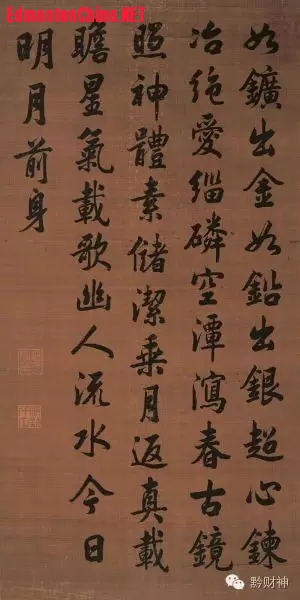 EdmontonChina.NET
如鑛出金如鉛出銀超心鍊
冶絶愛緇磷空潭瀉春古鏡
照神體素儲潔乘月返真載
瞻星氣載歌幽人流水今日
明月前身
黔财神